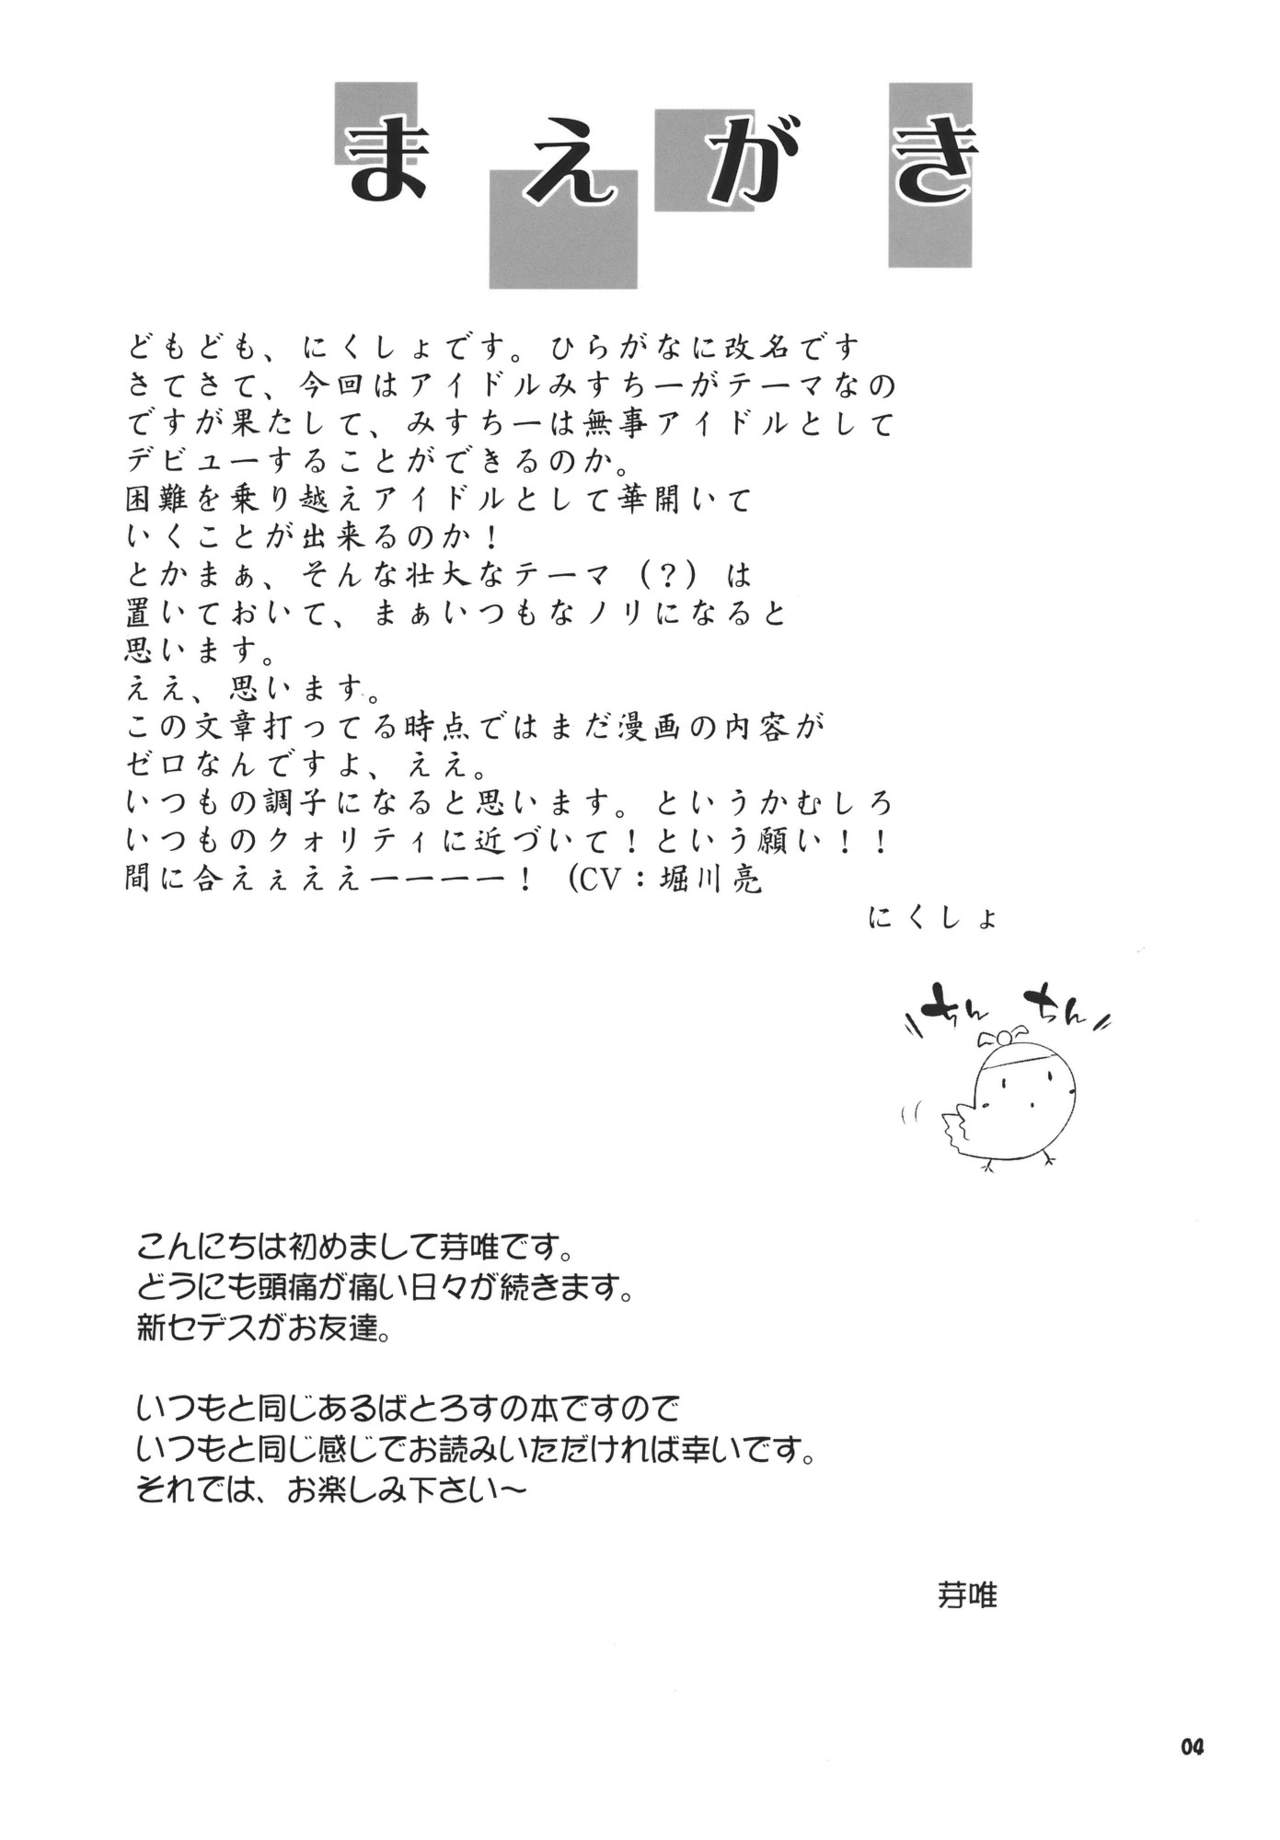 まえがき
どもども、にくしょです。ひらがなに改名です
さてさて、今回はアイドルみすちーがテーマなの
ですが果たして、みすちーは無事アイドルとして
デビューすることができるのか。
困難を乗り越えアイドルとして華開いて
いくことが出来るのか！
とかまぁ、そんな壮大なテーマ（？）は
置いておいて、まぁいつもなノリになると
思います。
ええ、思います。
この文章打ってる時点ではまだ漫画の内容が
ゼロなんですよ、ええ。
いつもの調子になると思います。というかむしろ
いつものクォリティに近づいて！という願い！！
間に合えぇええーーーー！（CV：堀川亮
にくしょ
ちん ちん
こんにちは初めまして芽唯です。
どうにも頭痛が痛い日々が続きます。
新セデスがお友達。
いつもと同じあるばとろすの本ですので
いつもと同じ感じでお読みいただければ幸いです。
それでは、お楽しみ下さい～
芽唯
04